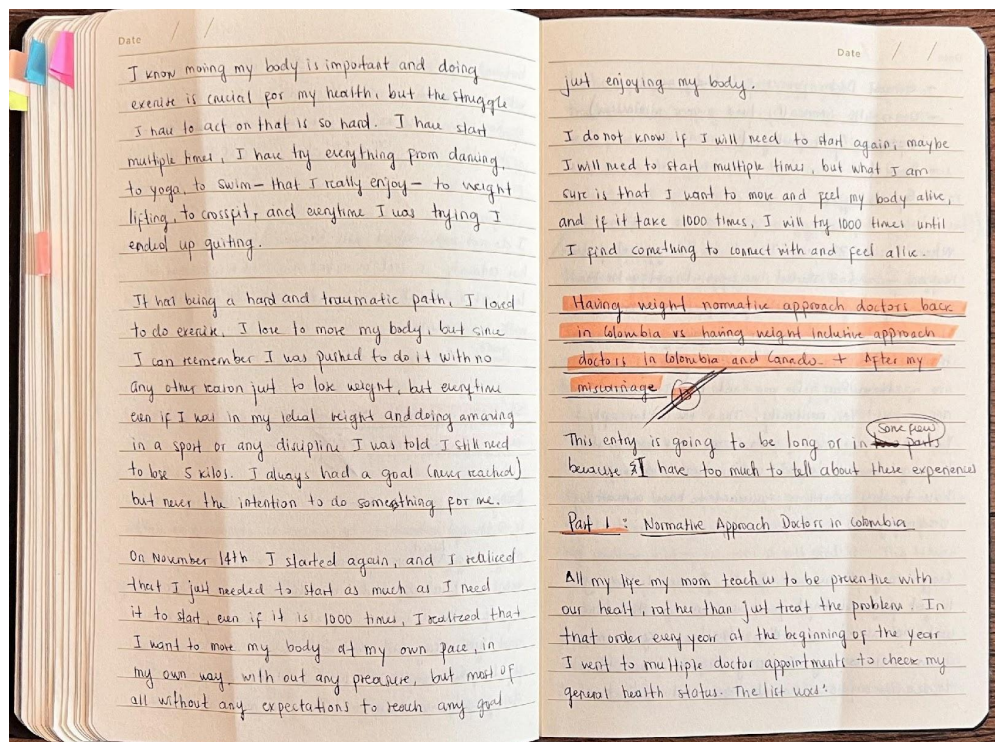 Date / /
I know moving my body is important and doing
exercise is crucial for my health, but the struggle
I have to act on that is so hard. I have start
multiple times, I have try everything from dancing,
to yoga, to swim – that I really enjoy – to weight
lifting, to crossfit, and everytime I was trying I
ended up quiting.
It has being a hard and traumatic path, I loved
to do exercise, I love to move my body, but since
I can remember I was pushed to do it with no
any other reason just to lose weight, but everytime
even if I was in my ideal weight and doing amazing
in a sport or any discipline I was told I still need
to lose 5 kilos. I always had a goal (never reached)
but never the intention to do something for me.
On November 14th I started again, and I realized
that I just needed to start as much as I need
it to start, even if it is 1000 times, I realized that
I want to move my body at my own pace, in
my own way, with out any preasure, but most of
all without any expectations to reach any goal
Date / /
just enjoying my body.
I do not know if I will need to start again, maybe
I will need to start multiple times, but what I am
sure is that I want to move and feel my body alive,
and if it take 1000 times, I will try 1000 times until
I find something to connect with and feel alive.
Having weight normative approach doctors back
in Colombia vs having weight inclusive approach
doctors in Colombia and Canada + After my
miscarriage
This entry is going to be long or in some few parts
because I have too much to tell about these experiences
Part 1 : Normative Approach Doctors in Colombia
All my life my mom teach us to be preventive with
our healt, rather than just treat the problem. In
that order every year at the beginning of the year
I went to multiple doctor appointments to check my
general health status. The list was: